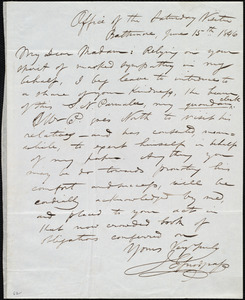 Office of the Saturday Visiter
Baltimore, June 15th 1846
My dear Madam: Relying on your
spirit of marked sympathy in my
behalf, I beg leave to introduce to
a share of your kindness, the bearer
of this my quondam clerk
Mr goes North to visit his
relatives and has consented, mean-
while, to exert himself in behalf
of my paper. Any thing you
may do towards promoting his
comfort and success, will be
cordially acknowledged by me
and placed to your acct in
that most crowded book of
obligations conferred on
Yours Very truly
J. E. Snodgrass